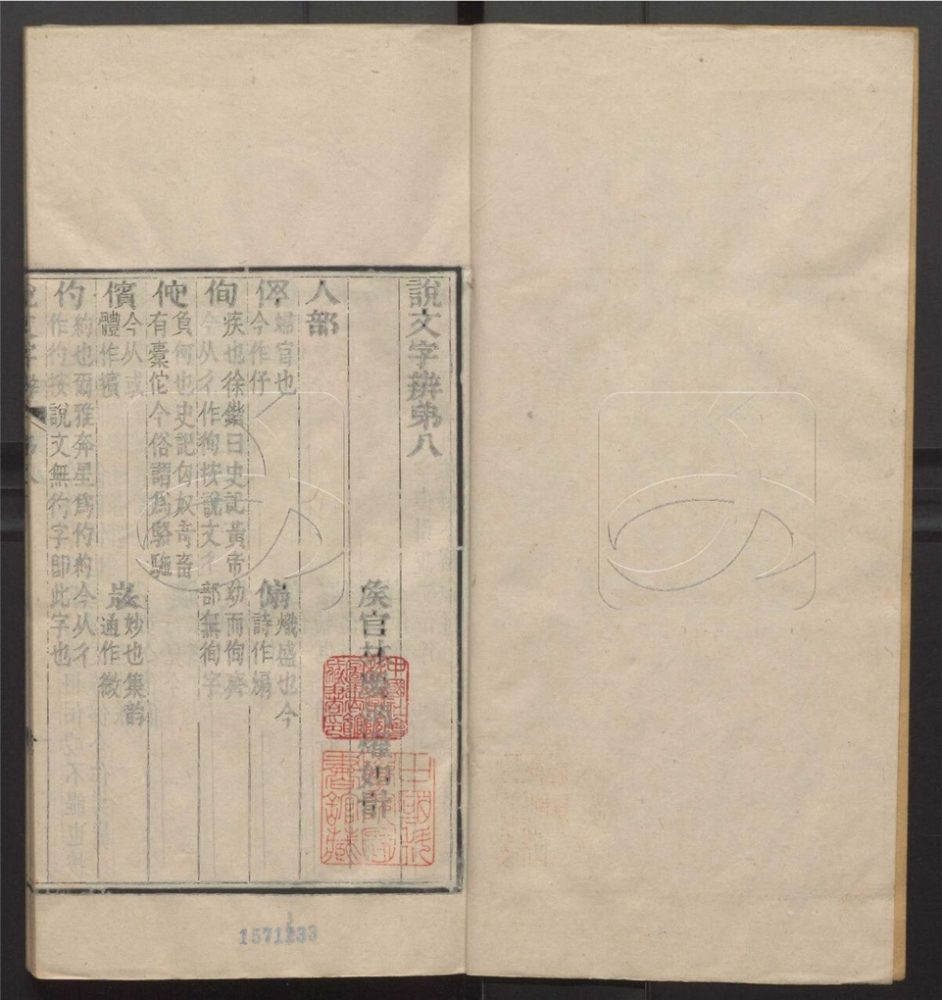 說文字辨弟八
侯官林慶炳耀如辭
人部
伃 婦官也今作伃 傓 熾盛也今詩作煽
侚 疾也徐鍇曰史記黃帝幼而侚齊今从彳作徇按說文彳部無徇字
佗 負何也史記匈奴奇畜有橐佗今俗謂爲駱駞
儐 今从或體作擯 㣲 妙也集韵通作微
仢 約也爾雅奔星爲仢約今从彳作彴按說文無彴字即此字也
1571233